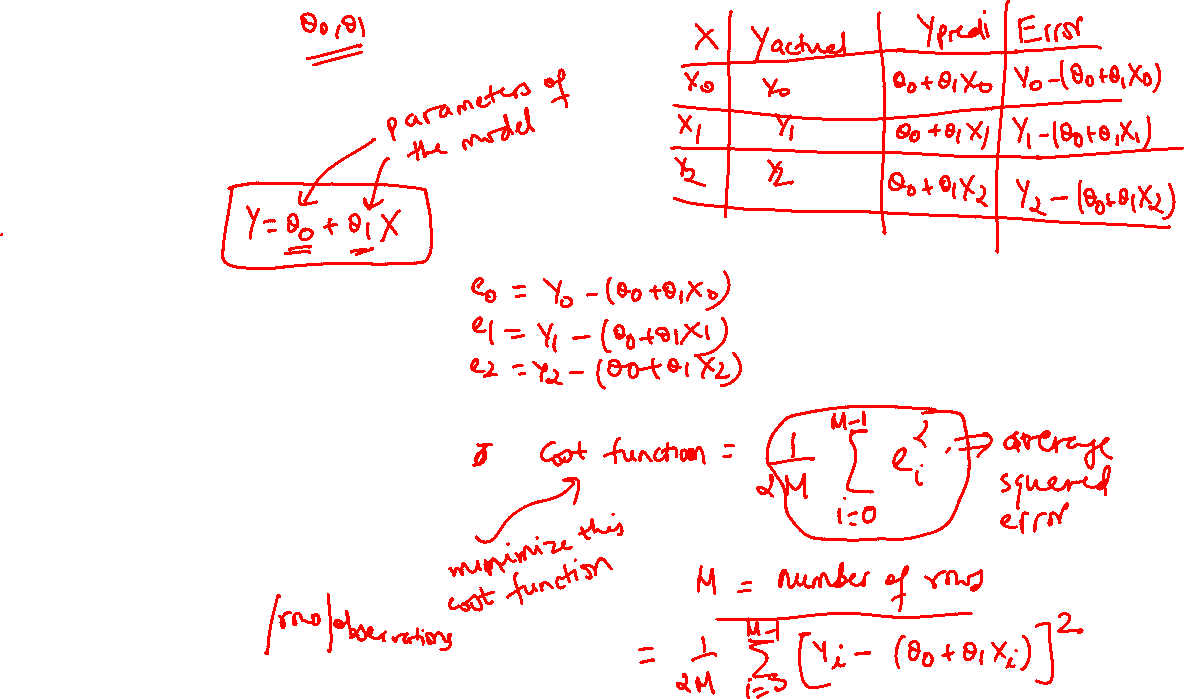 θ0, θ1
parameters of
the model
Y = θ0 + θ1 X
X | Yactual | Ypredi | Error
X0 | Y0 | θ0+θ1X0 | Y0-(θ0+θ1X0)
X1 | Y1 | θ0+θ1X1 | Y1-(θ0+θ1X1)
Y2 | Y2 | θ0+θ1X2 | Y2-(θ0+θ1X2)
e0 = Y0 - (θ0+θ1X0)
e1 = Y1 - (θ0+θ1X1)
e2 = Y2 - (θ0+θ1X2)
cost function = 1/2M Σ i=0 M-1 ei² ⇒ average
squared
error
minimize this
cost function
M = number of rows
/rows/observations
= 1/2M Σ M-1 [Yi - (θ0 + θ1Xi)]²